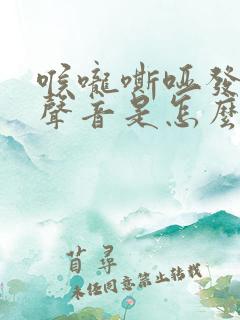 喉嚨嘶啞發
聲音是怎麼
苜尋
未经同意禁止转载